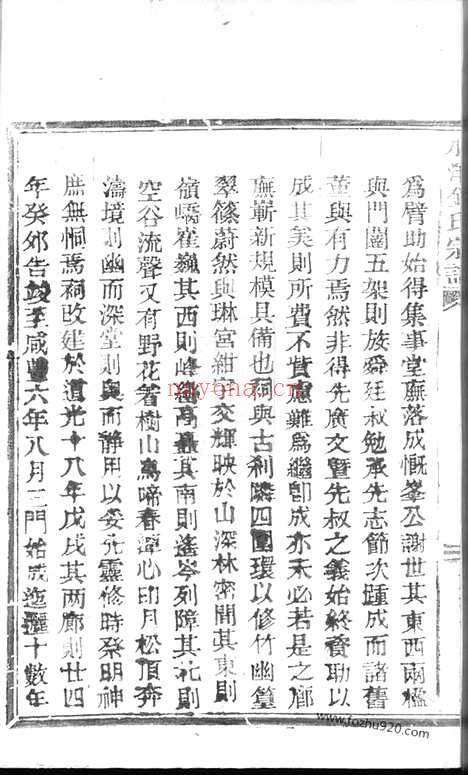 為臂助始得集事堂廡落成慨峯公謝世其東西兩楹
與門闥五架則族舜廷叔勉承先志節次踵成而諸舊
董與有力焉然非得先廣文暨先叔之義始終資助以
成其美則所費不貲慮難為繼卽成亦未必若是之廊
廡嶄新規模具備也祠與古刹隣四圍環以修竹幽篁
翠篠蔚然與琳宮紺交輝映於山深林密間其東則
嶺嶠崔巍其西則峰巒高矗其南則遙岑列障其北則
空谷流聲又有野花著樹山鳥啼春潭心印月松頂奔
濤境則幽而深堂則與而靜用以妥先靈修時祭明神
庶無恫焉祠改建於道光十八年戊戌其兩廊則廿四
年癸卯告竣至咸豐六年八月三門始成迤邐十數年
氏宗譜
nayona.cn
www.fozhu920.com